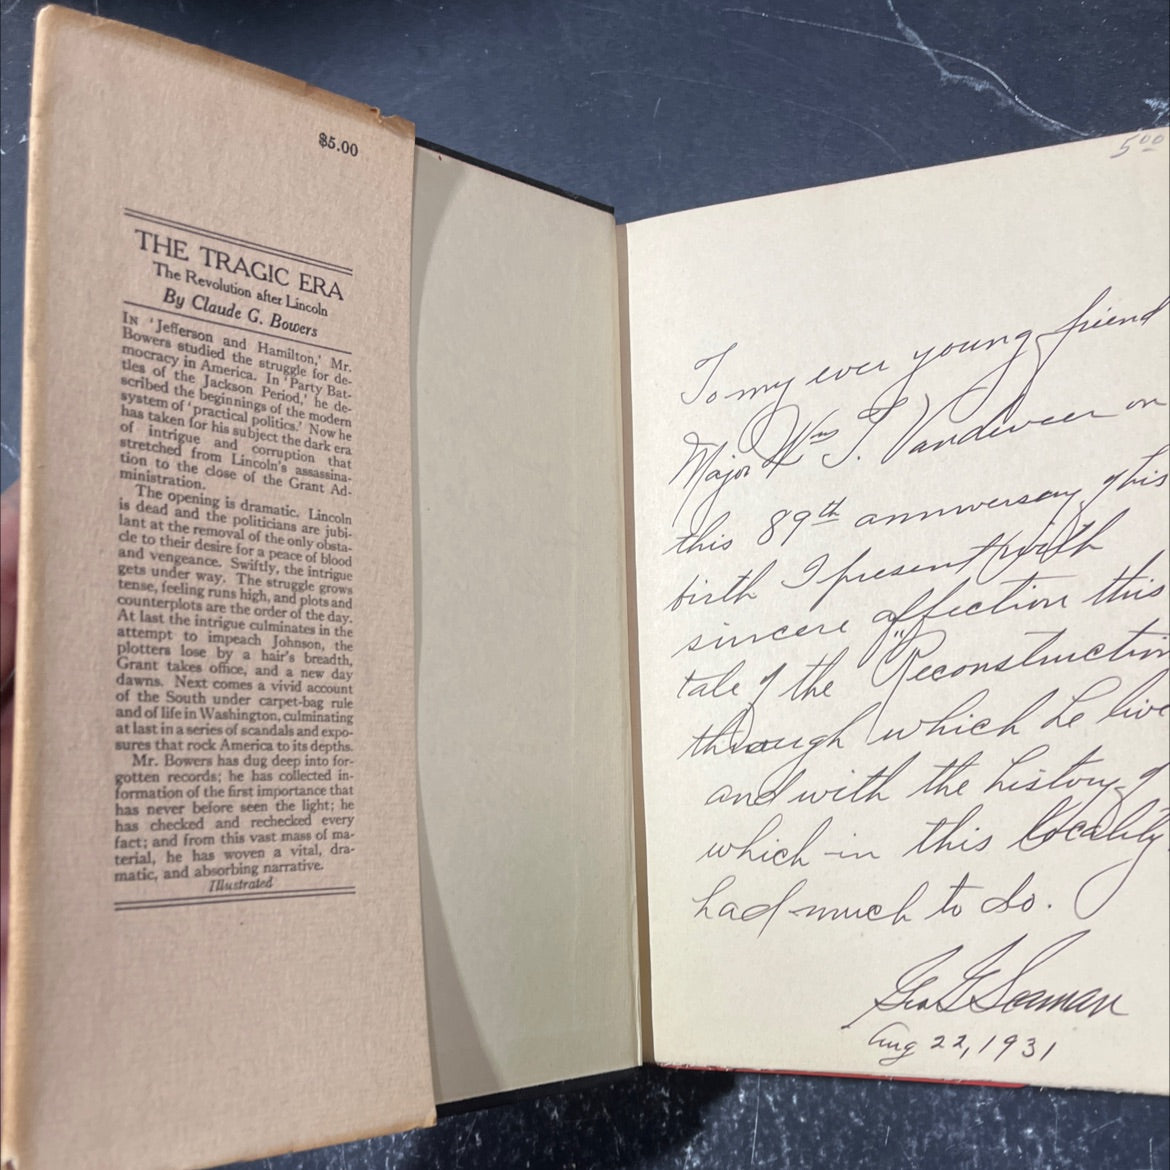 $5.00
THE TRAGIC ERA
The Revolution after Lincoln
By Claude G. Bowers
IN 'Jefferson and Hamilton,' Mr.
Bowers studied the struggle for de-
mocracy in America. In 'Party Bat-
tles of the Jackson Period,' he de-
scribed the beginnings of the modern
system of 'practical politics.' Now he
has taken for his subject the dark era
of intrigue and corruption that
stretched from Lincoln's assassina-
tion to the close of the Grant Ad-
ministration.
The opening is dramatic. Lincoln
is dead and the politicians are jubi-
lant at the removal of the only obsta-
cle to their desire for a peace of blood
and vengeance. Swiftly, the intrigue
gets under way. The struggle grows
tense, feeling runs high, and plots and
counterplots are the order of the day.
At last the intrigue culminates in the
attempt to impeach Johnson, the
plotters lose by a hair's breadth,
Grant takes office, and a new day
dawns. Next comes a vivid account
of the South under carpet-bag rule
and of life in Washington, culminating
at last in a series of scandals and expo-
sures that rock America to its depths.
Mr. Bowers has dug deep into for-
gotten records; he has collected in-
formation of the first importance that
has never before seen the light; he
has checked and rechecked every
fact; and from this vast mass of ma-
terial, he has woven a vital, dra-
matic, and absorbing narrative.
Illustrated
5 00
To my ever young friend
Major Wm T. Vandeveer on
this 89th anniversary of his
birth I present with
sincere affection this
tale of the "Reconstruction
through which he live
and with the history of
which in this locality
had much to do.
Geo G Seaman
Aug 22, 1931